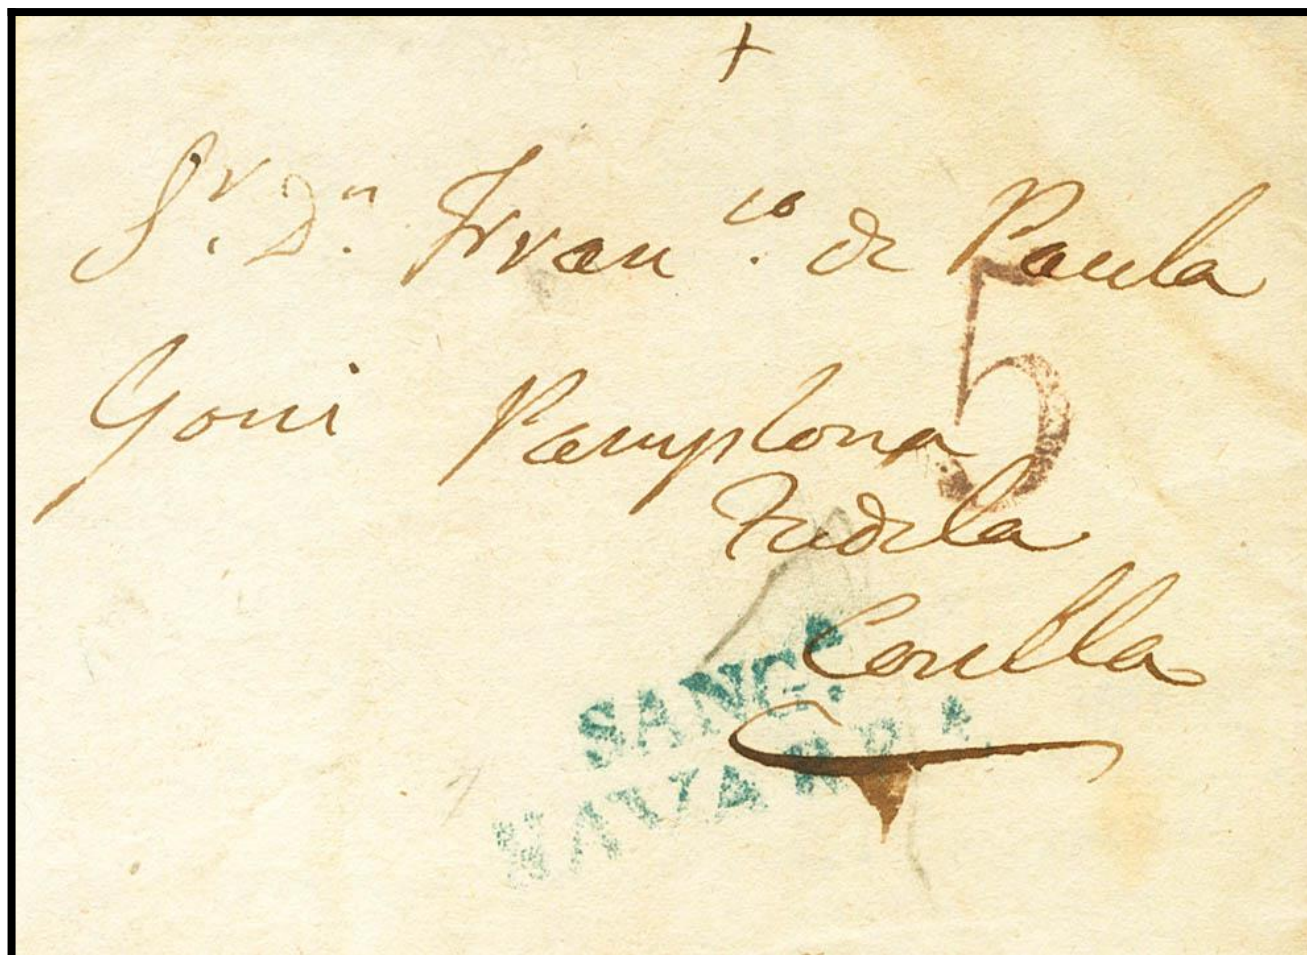 +
Sr. Dn. Franco. de Paula
Goni Pamplona
Tudela
Corella
5
SANG.A
NAVARRA